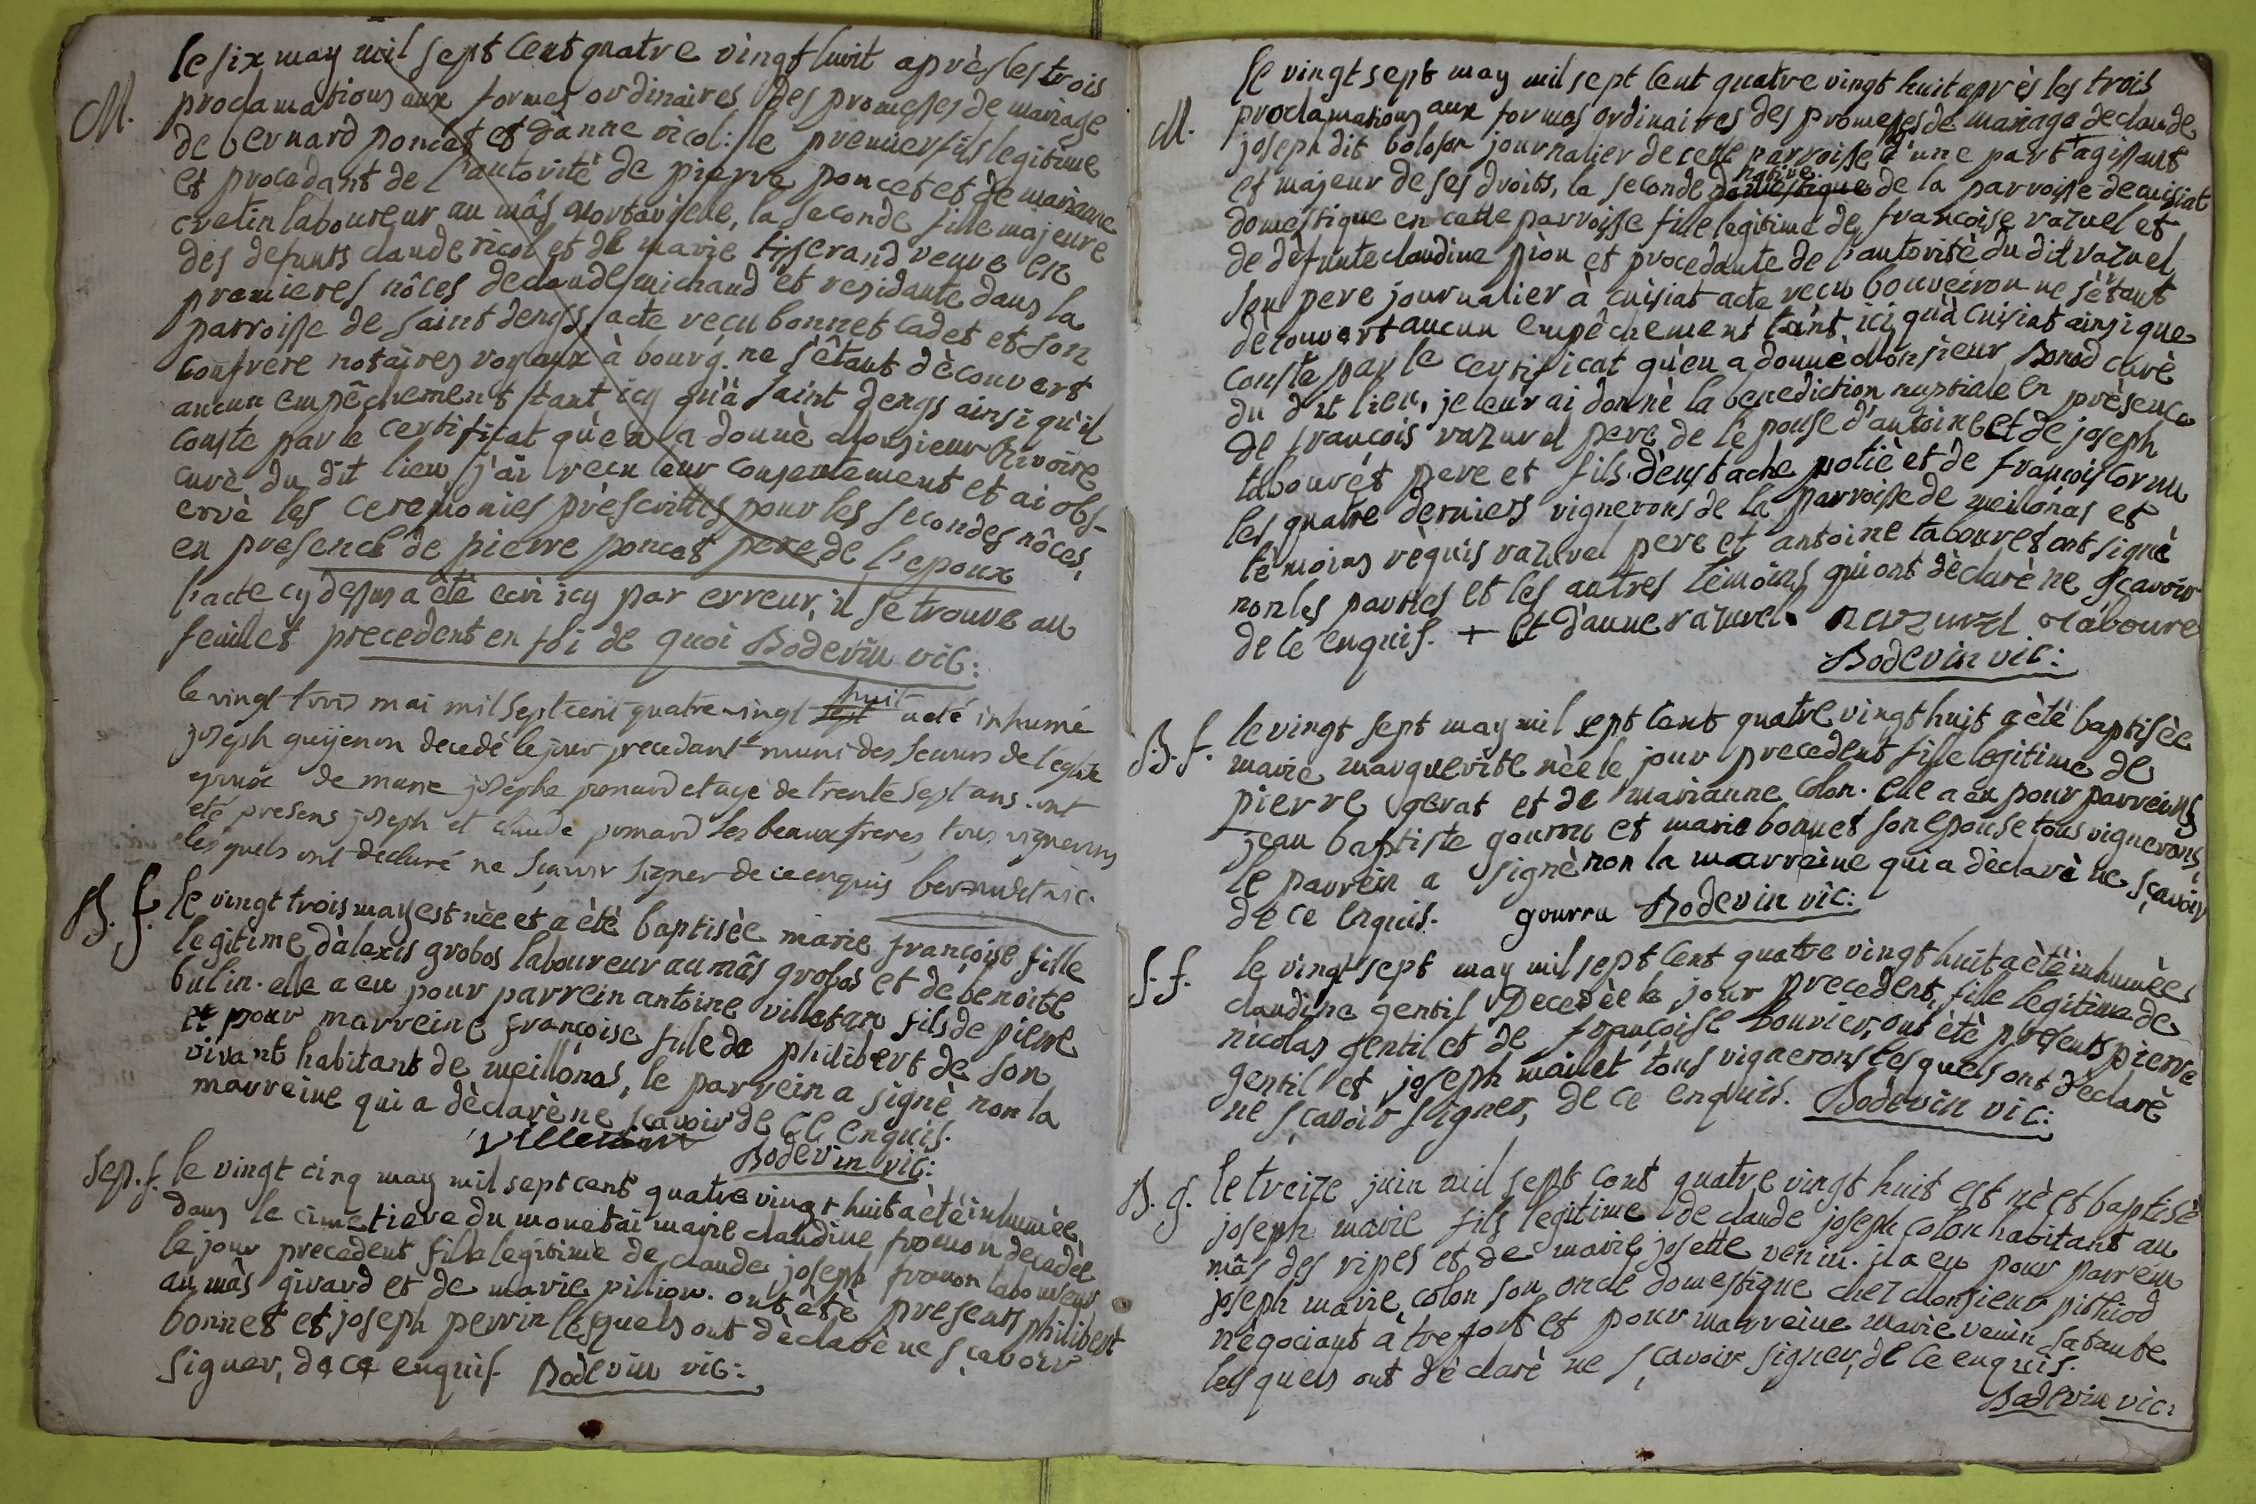 le six may mil sept cent quatre vingt huit après les trois
M. proclamations aux formes ordinaires des promesses de mariage
de bernard poncet et d'anne ricol: le premier fils legitime
et procedant de l'autorité de pierre poncet et de marianne
cretin laboureur au mâs, la seconde fille majeure
des defunts claude ricol et de marie tisserand veuve en
premieres nôces de claude michaud et residante dans la
parroisse de saint denys, acte recu bonnet cadet et son
confrere notaires royaux à bourg. ne s'êtant dècouvert
aucun empêchement tant icy qu'à saint denys ainsi qu'il
conste par le certificat qu'en a donnè monsieur Rivoire
curè du dit lieu j'ai recu leur consentement et ai obs-
ervè les ceremonies prèscrittes pour les secondes nôces,
en presence de pierre poncet pere de l'epoux
l'acte cy dessus a ètè ecri icy par erreur, il se trouve au
feuillet precedent en foi de quoi Bodevin vic:
le vingt trois mai mil sept cent quatre vingt sept huit a eté inhumé
joseph guyenon decedé le jour precedant muni des secours de l'eglise
epoux de marie josephe ponard et agé de trente sept ans. ont
eté presens joseph et claude ponard ses beaux freres, tous vignerons
lesquels ont declaré ne sçavoir signer de ce enquis bernudet vic.
B. f. le vingt trois may est nèe et a ètè baptisèe marie françoise fille
legitime d'alexis grobos laboureur au mâs grobos et de benoite
bulin. elle a eu pour parrein antoine villetan fils de pierre
et pour marreine françoise fille de philibert de son
vivant habitant de meillonas, le parrein a signè non la
marreine qui a dèclarè ne sçavoir de ce enquis.
Bodevin vic:
Sep. f. le vingt cinq may mil sept cent quatre vingt huit a ètè inhumèe
dans le cimetiere du monetai marie claudine fromon decedèe
le jour precedent fille legitime de claude joseph fromon laboureur
au mâs girard et de marie pition. ont ètè presents philibert
bonnet et joseph perrin lesquels ont dèclarè ne sçavoir
signer, de ce enquis Bodevin vic:
le vingt sept may mil sept cent quatre vingt huit après les trois
M. proclamations aux formes ordinaires des promesses de mariage de claude
joseph dit boloson journalier de cette parroisse d'une part agissant
et majeur de ses droits, la seconde domestique native de la parroisse de cuisiat
domestique en cette parroisse fille legitime de françoise razurel et
de dèfunte claudine pion et procedante de l'autoritè du dit razurel
son pere journalier à cuisiat acte recu bouveiron ne s'ètant
dècouvert aucun empêchement tant ici qu'à cuisiat ainsi que
conste par le certificat qu'en a donnè monsieur Bonod curè
du dit lieu, je leur ai donnè la benediction nuptiale en prèsence
de françois razurel pere de l'epouse d'antoine et de joseph
tabouret pere et fils d'eustache potiè et de françois cornu
les quatre derniers vignerons de la parroisse de meillonas et
tèmoins rèquis razurel pere et antoine tabouret ont signè
non les parties et les autres tèmoins qui ont dèclarè ne sçavoir
de ce enquis. + et d'anne razurel. razurel tabouret
Bodevin vic:
B. f. le vingt sept may mil sept cent quatre vingt huit a ètè baptisèe
marie marguerite nèe le jour precedent fille legitime de
pierre gerat et de marianne colon. elle a eu pour parreins
jean baptiste gourru et marie bonnet son epouse tous vignerons,
le parrein a signè non la marreine qui a dèclarè ne sçavoir
de ce enquis. gourru Bodevin vic:
S. f. le vingt sept may mil sept cent quatre vingt huit a ètè inhumèe
claudine gentil decedèe le jour precedent, fille legitime de
nicolas gentil et de françoise bouvier, ont ètè presents pierre
gentil et joseph maillet tous vignerons lesquels ont dèclarè
ne sçavoir signer, de ce enquis. Bodevin vic:
B. g. le treize juin mil sept cent quatre vingt huit est nè et baptisè
joseph marie fils legitime de claude joseph colon habitant au
mâs des ripes et de marie josette venin. il a eu pour parrein
joseph marie colon son oncle domestique chez monsieur pithiod
nègociant à trefort et pour marreine marie venin sa tante
lesquels ont dèclarè ne sçavoir signer, de ce enquis.
Bodevin vic: